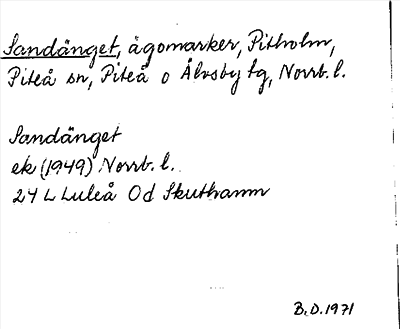 Sandänget, ägomarker, Pitholm,
Piteå sn, Piteå o Älvsby tg, Norrb. l.
Sandänget
ek (1949) Norrb. l.
24 L Luleå 0d Skuthamn
B.D. 1971